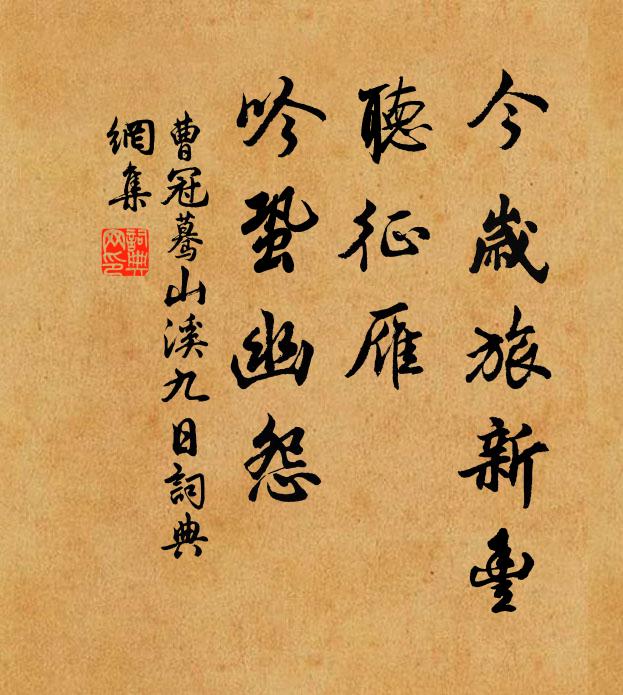 今歲旅新豐
聽征雁
吟蛩幽怨
曹冠驀山溪九日詞典
網集
詞典
网印